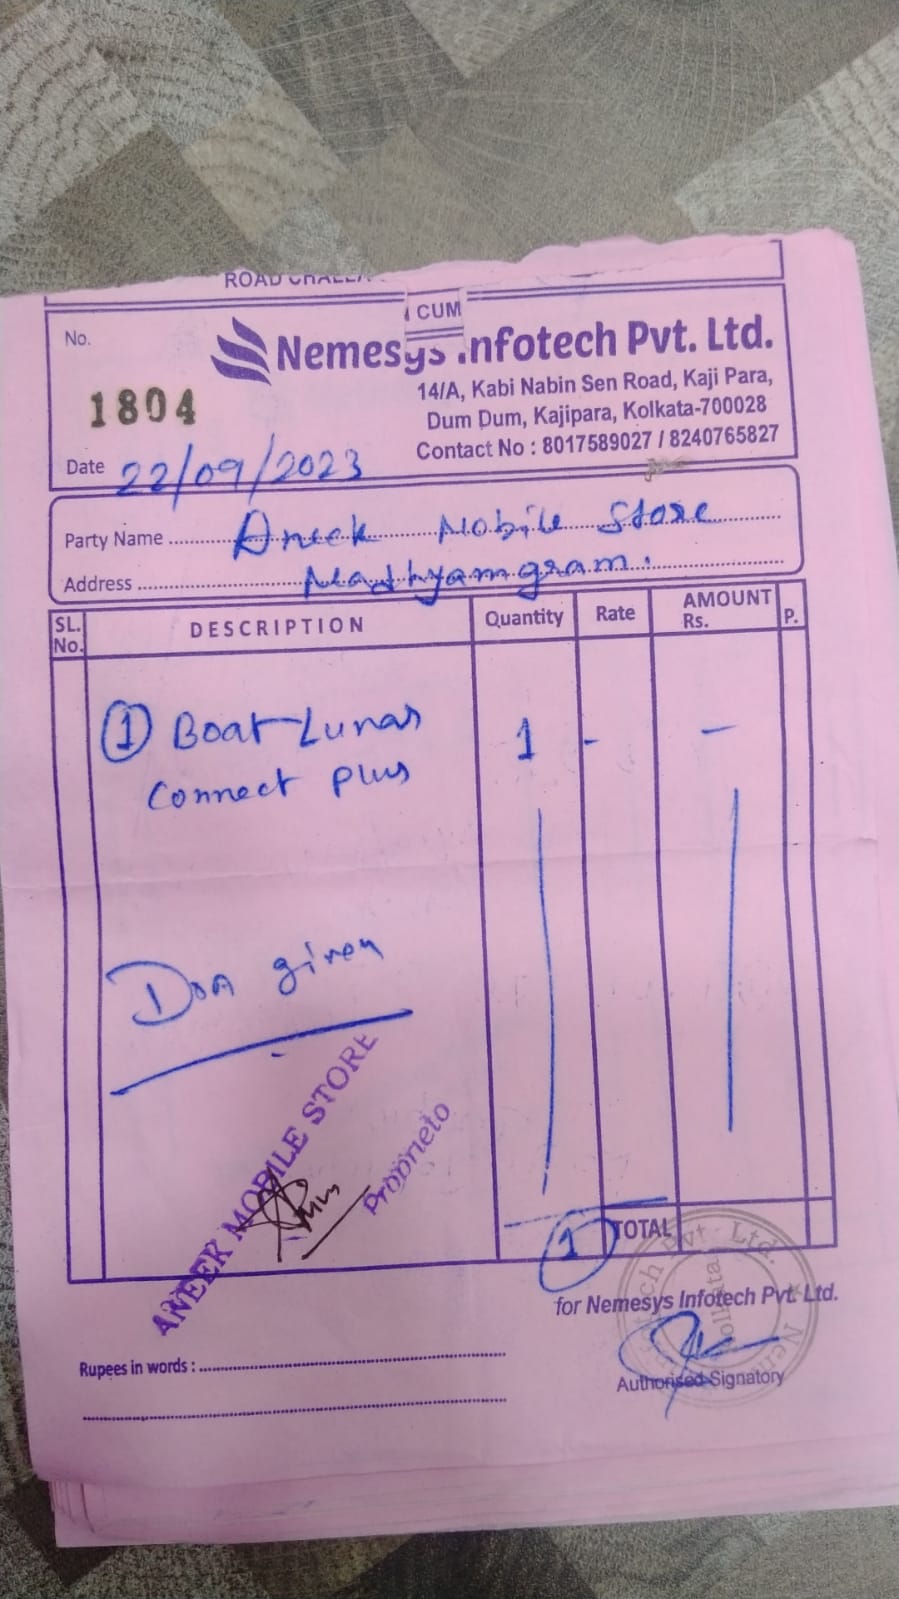 ROAD CHALLA
CUM
No.
Nemesys Infotech Pvt. Ltd.
1804
14/A, Kabi Nabin Sen Road, Kaji Para,
Dum Dum, Kajipara, Kolkata-700028
Contact No : 8017589027 / 8240765827
Date 22/09/2023
Party Name Aneek Mobile Store
Address Madhyamgram.
SL. No. DESCRIPTION Quantity Rate AMOUNT Rs. P.
① Boat Lunar 1 - -
Connect Plus
DOA given
ANEEK MOBILE STORE
Proprieto
1 TOTAL
for Nemesys Infotech Pvt. Ltd.
Rupees in words :
Authorised Signatory